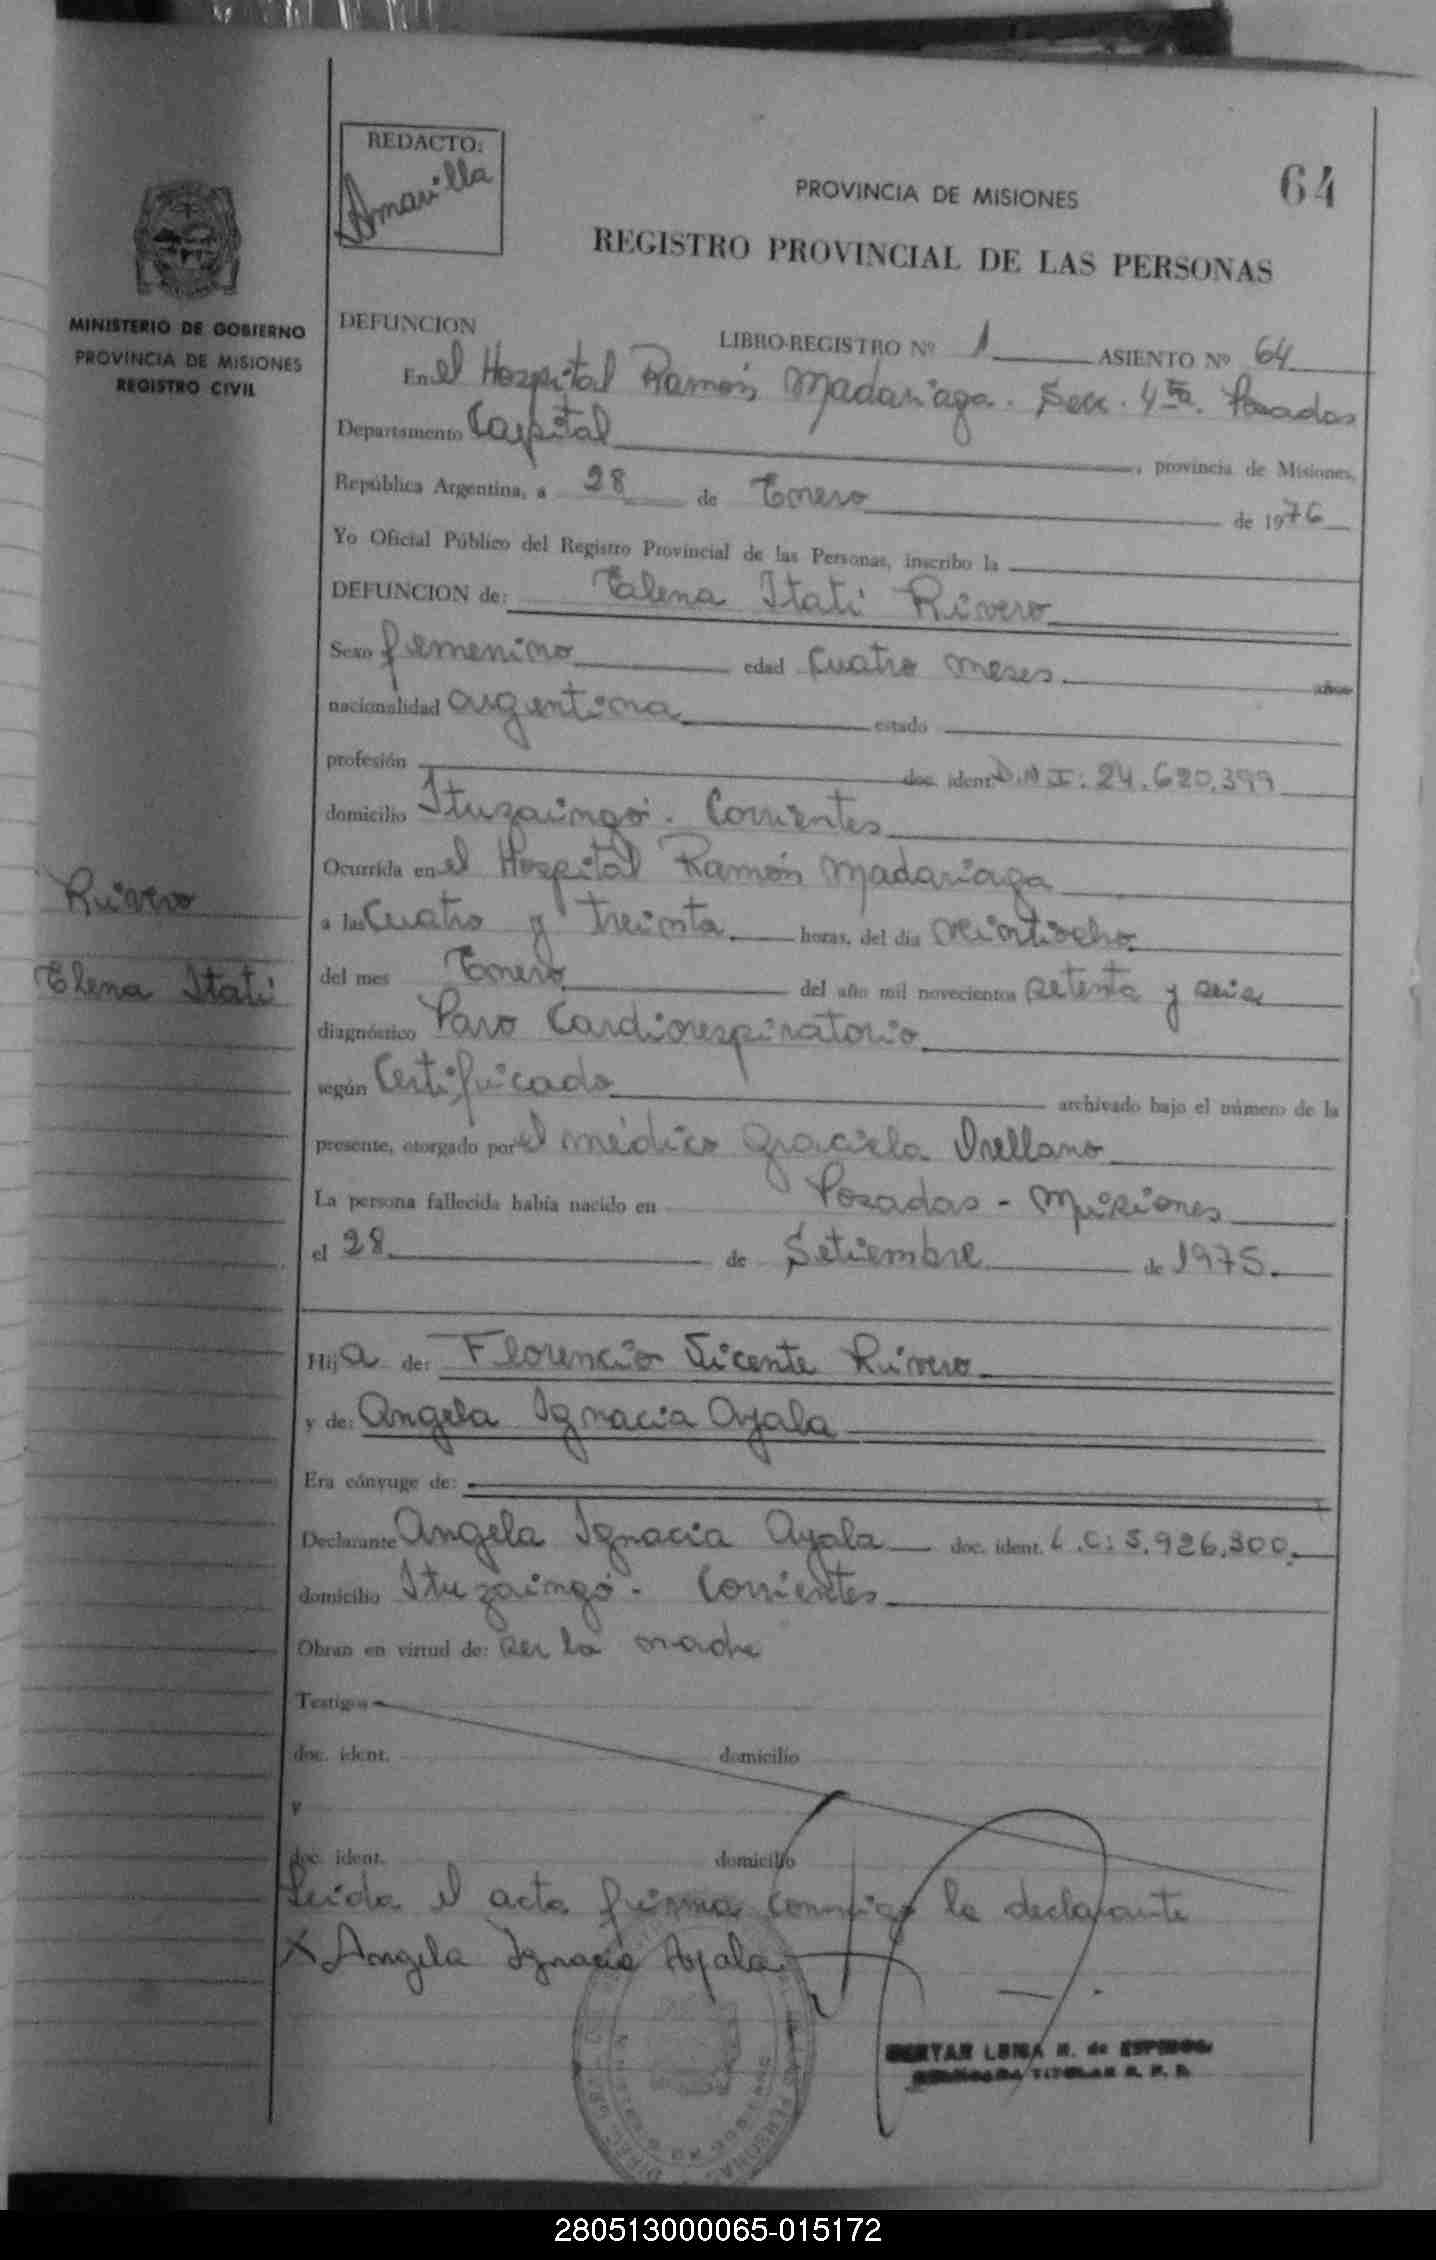 REDACTO:
Amarilla
64
PROVINCIA DE MISIONES
REGISTRO PROVINCIAL DE LAS PERSONAS
MINISTERIO DE GOBIERNO
PROVINCIA DE MISIONES
REGISTRO CIVIL
DEFUNCION
LIBRO-REGISTRO Nº 1 ASIENTO Nº 64
En el Hospital Ramón Madariaga. Secc. 4ta. Posadas
Departamento Capital, provincia de Misiones,
República Argentina, a 28 de Enero de 1976
Yo Oficial Público del Registro Provincial de las Personas, inscribo la
DEFUNCION de: Elena Itatí Rivero
Sexo femenino edad cuatro meses años
nacionalidad argentina estado
profesión doc. ident. D.N.I: 24.620.399
domicilio Ituzaingó. Corrientes
Ocurrida en el Hospital Ramón Madariaga
Rivero
a las cuatro y treinta horas, del día veintiocho
Elena Itatí
del mes Enero del año mil novecientos setenta y seis
diagnóstico Paro Cardiorespiratorio
según Certificado archivado bajo el número de la
presente, otorgado por el médico Graciela Orellano
La persona fallecida había nacido en Posadas - Misiones
el 28 de Setiembre de 1975.
Hija de: Florencio Vicente Rivero
y de: Angela Ignacia Ayala
Era cónyuge de:
Declarante Angela Ignacia Ayala doc. ident. L.C: 5.926.300.
domicilio Ituzaingó. Corrientes
Obran en virtud de: ser la madre
Testigos
doc. ident. domicilio
y
doc. ident. domicilio
Leída el acta firma conmigo la declarante
X Angela Ignacia Ayala
de ESPINOSA
TITULAR R. P. P.
280513000065-015172